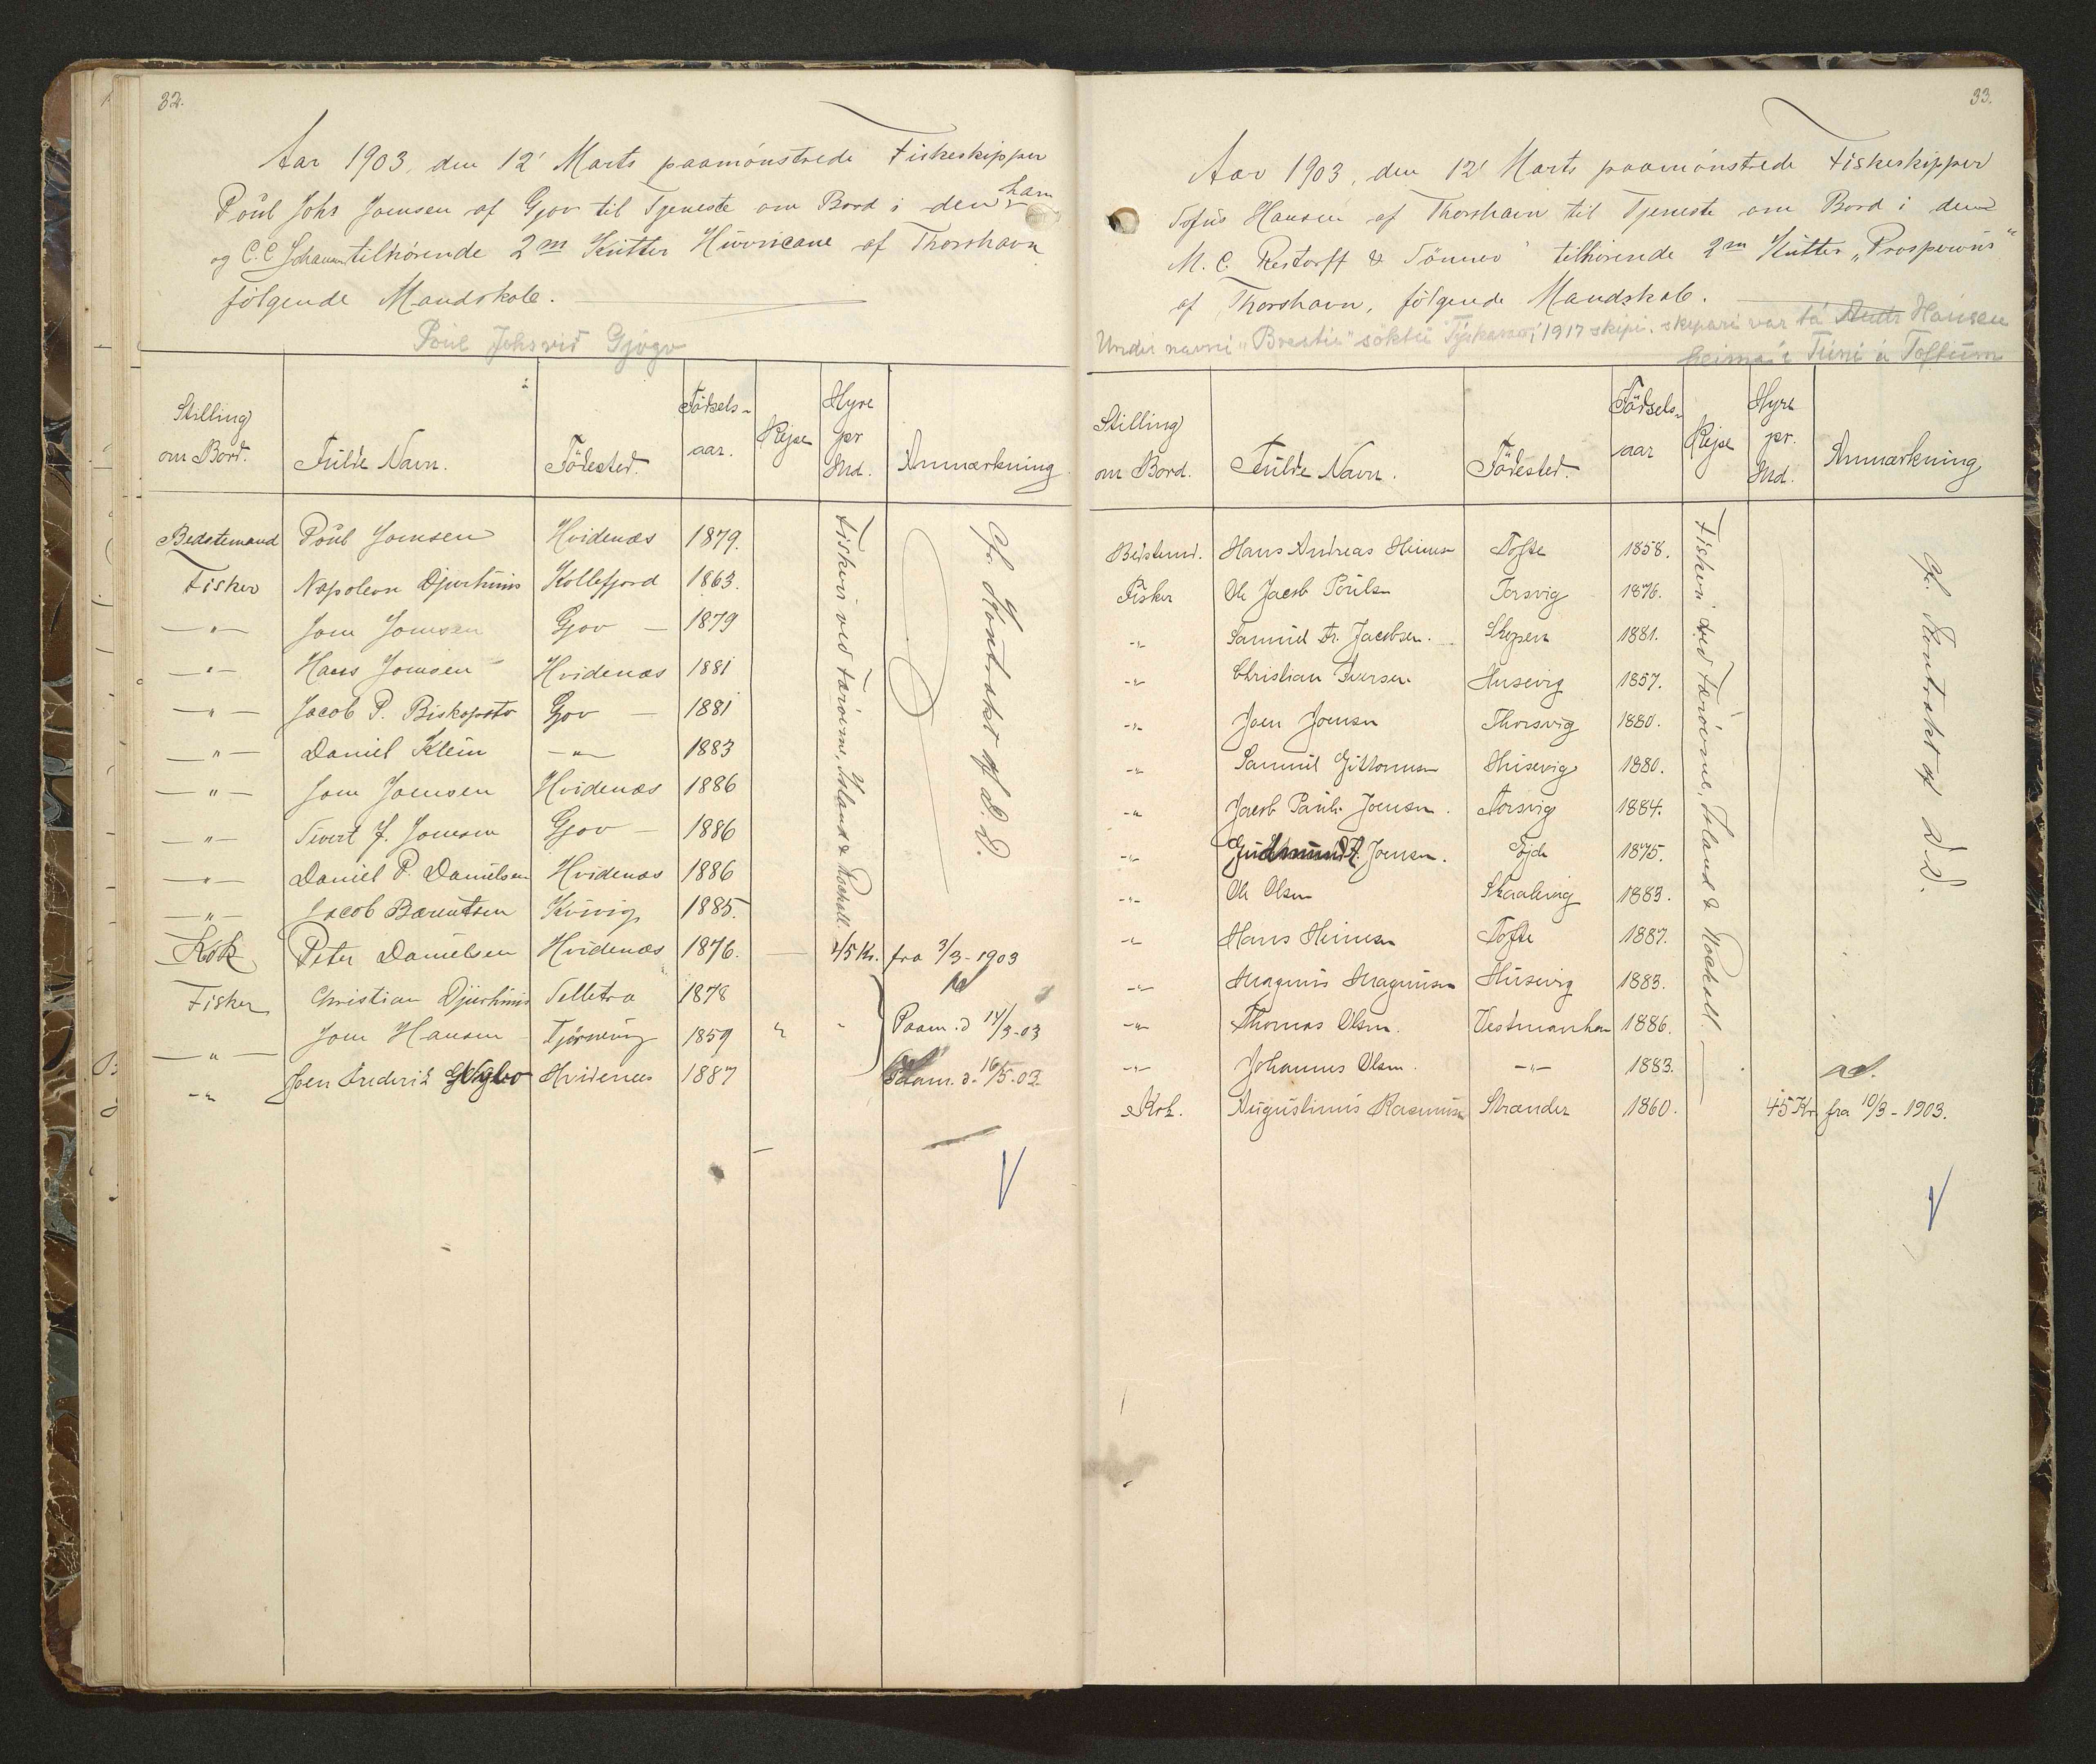 32.
Aar 1903, den 12' Marts paamönstrede Fiskeskipper
Poul Johs Joensen af Gjov til Tjeneste om Bord i den ham
og C.C. tilhörende 2m Kutter Hurricane af Thorshavn
fölgende Mandskab.
Poul Johs við Gjógv
Stilling om Bord. Fulde Navn. Födested. Födsels-aar. Rejse Hyre pr Md. Anmærkning
Bedstemand Poul Joensen Hvidenæs 1879.
Fisker Napoleon Djurhuus Kollefjord 1863.
—"— Joen Joensen Gjov — 1879
—"— Hans Joensen Hvidenæs 1881
—"— Jacob P. Biskopstø Gjov — 1881
—"— Daniel Klein —"— 1883
—"— Joen Joensen Hvidenæs 1886
—"— Sivert J. Joensen Gjov — 1886
—"— Daniel P. Danielsen Hvidenæs 1886
—"— Jacob Bærentsen Kvivig 1885.
Kok Peter Danielsen Hvidenæs 1876. — 45 Kr. fra 3/3-1903
Fisker Christian Djurhuus Selletræ 1878
—"— Joen Hansen Tjörnevig 1859 " " Paam. d 14/3-03
-"- Joen Frederik Hvidenæs 1887 Paam. d. 16/5.03
Fiskeri ved Færöerne, Island & Rockall.
Cfr. Kontrakt af D.D.
33.
Aar 1903, den 12' Marts paamönstrede Fiskeskipper
Sofus Hansen af Thorshavn til Tjeneste om Bord i den
M. C. Restorff & Sönner tilhörende 2m Kutter „Prosperous"
af Thorshavn, fölgende Mandskab.
Undir navni „Brestir" söktu Týskarar í 1917 skipi. skipari var tá Andr Hansen
heima í Túni á Toftum
Stilling om Bord. Fulde Navn. Födested. Födsels-aar Rejse Hyre pr. Md. Anmærkning
Bedstmd. Hans Andreas Heinesen Tofte 1858.
Fisker Ole Jacob Poulsen Torsvig 1876.
-"- Samuel Fr. Jacobsen. Skopen 1881.
-"- Christian Iversen Husevig 1857.
-"- Joen Joensen Thorsvig 1880.
-"- Samuel Guttormsen Husevig 1880.
-"- Jacob Pauli Joensen. Torsvig 1884.
-"- Gudmund A. Joensen. Gjov 1875.
-"- Ole Olsen Skaalevig 1883.
-"- Hans Heinesen Tofte 1887.
-"- Magnus Magnusen Husevig 1883.
-"- Thomas Olsen. Vestmanhavn 1886.
-"- Johannes Olsen. —"— 1883.
Kok. Augustinus Rasmusen Strander 1860. 45 Kr fra 10/3-1903.
Fiskeri ved Færöerne, Island & Rockall.
Cfr. Kontrakt af D.D.